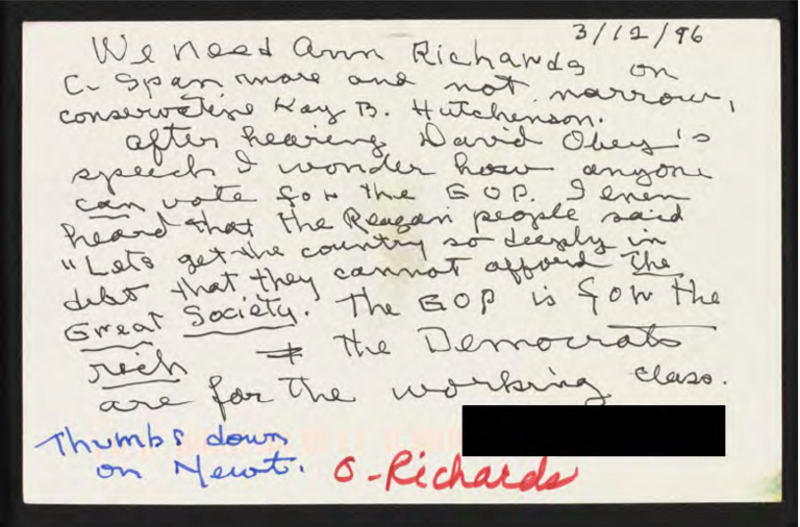 3/12/96
We need Ann Richards on
C-Span more and not narrow,
conservative Kay B. Hutchenson.
After hearing David Obey's
speech I wonder how anyone
can vote for the GOP. I even
heard that the Reagan people said
"Lets get the country so deeply in
debt that they cannot afford the
Great Society. The GOP is for the
rich & the Democrats
are for the working class.
Thumbs down
on Newt.
O-Richards